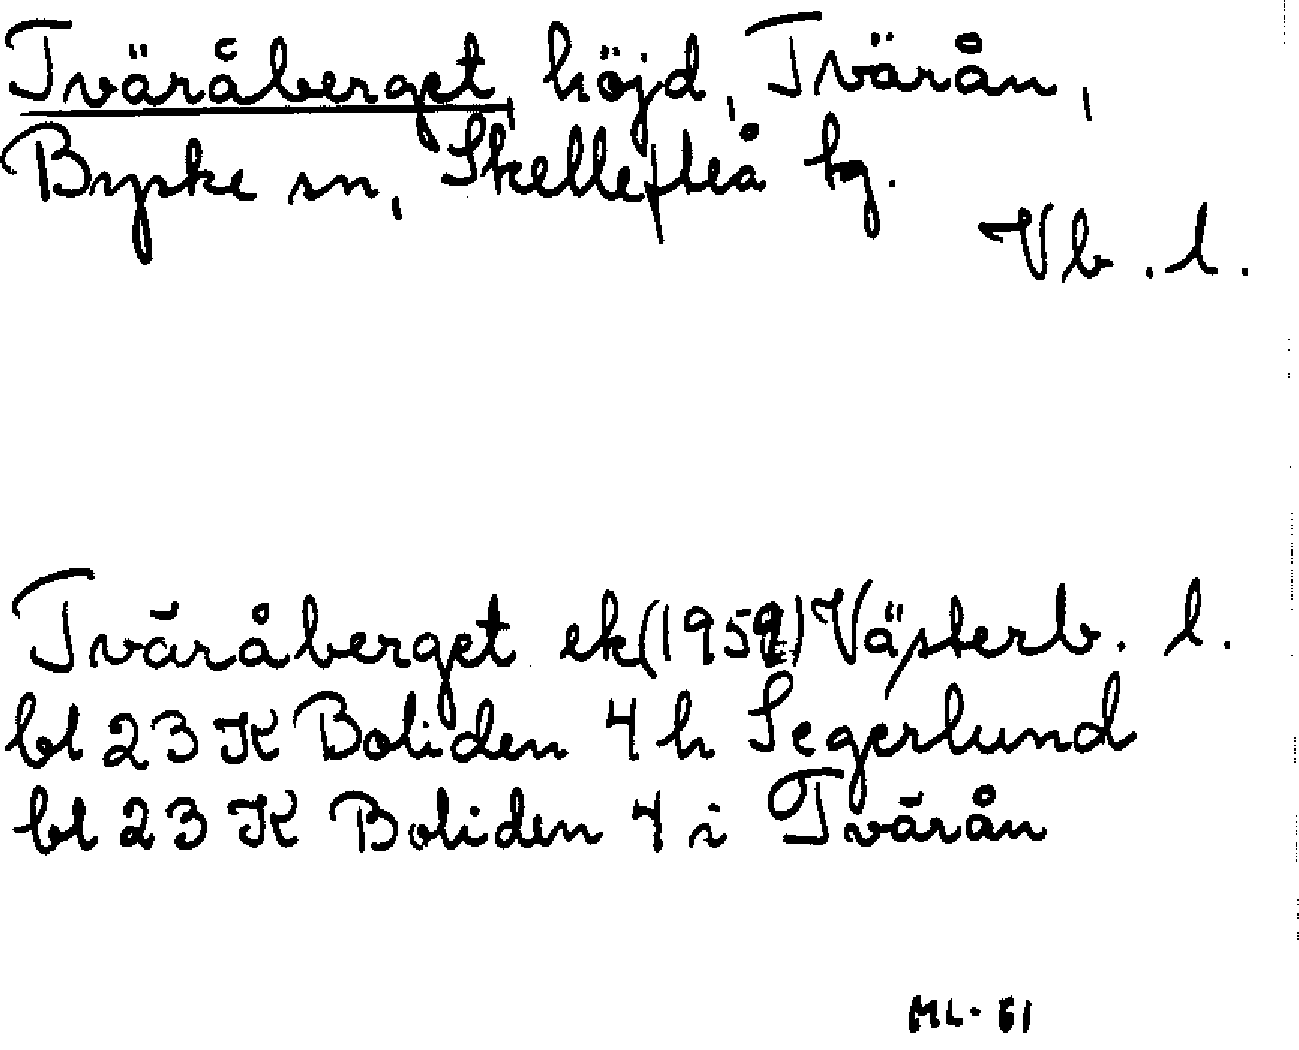 Tväråberget, höjd, Tvärån,
Byske sn, Skellefteå kg.
Vb. l.
Tväråberget ek (1959) Västerb. l.
bl 23 K Boliden 4 h Segerlund
bl 23 K Boliden 4 i Tvärån
ML-61